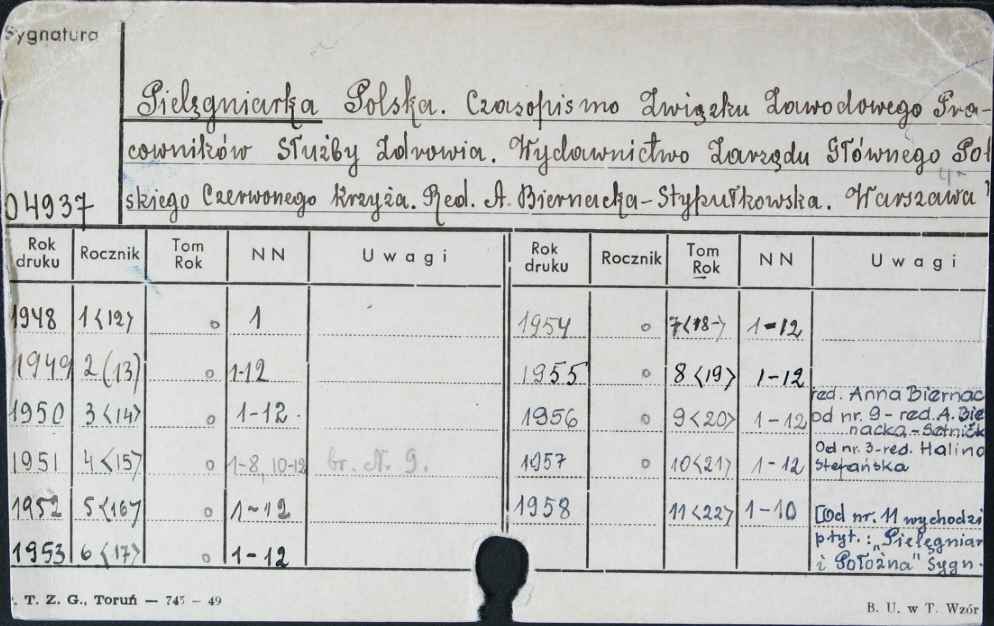 Sygnatura
Pielęgniarka Polska. Czasopismo Związku Zawodowego Pra-
cowników Służby Zdrowia. Wydawnictwo Zarządu Głównego Pol
skiego Czerwonego Krzyża. Red. A. Biernacka-Stypułkowska. Warszawa
04937
Rok druku Rocznik Tom Rok NN Uwagi Rok druku Rocznik Tom Rok NN Uwagi
1948 1<12> o 1 1954 o 7<18> 1-12
1949 2(13) o 1-12 1955 o 8<19> 1-12
1950 3<14> o 1-12. 1956 o 9<20> 1-12 red. Anna Biernac
od nr. 9 - red. A. Bie
nacka-Setnick
1951 4<15> o 1-8, 10-12 br. N. 9. 1957 o 10<21> 1-12 Od nr. 3-red. Halina
Stefańska
1952 5<16> o 1-12 1958 11<22> 1-10 [Od nr. 11 wychodzi
1953 6<17> o 1-12 ptyt.: „Pielęgniar
i Położna" Sygn.
T. Z. G., Toruń — 745 - 49
B. U. w T. Wzór